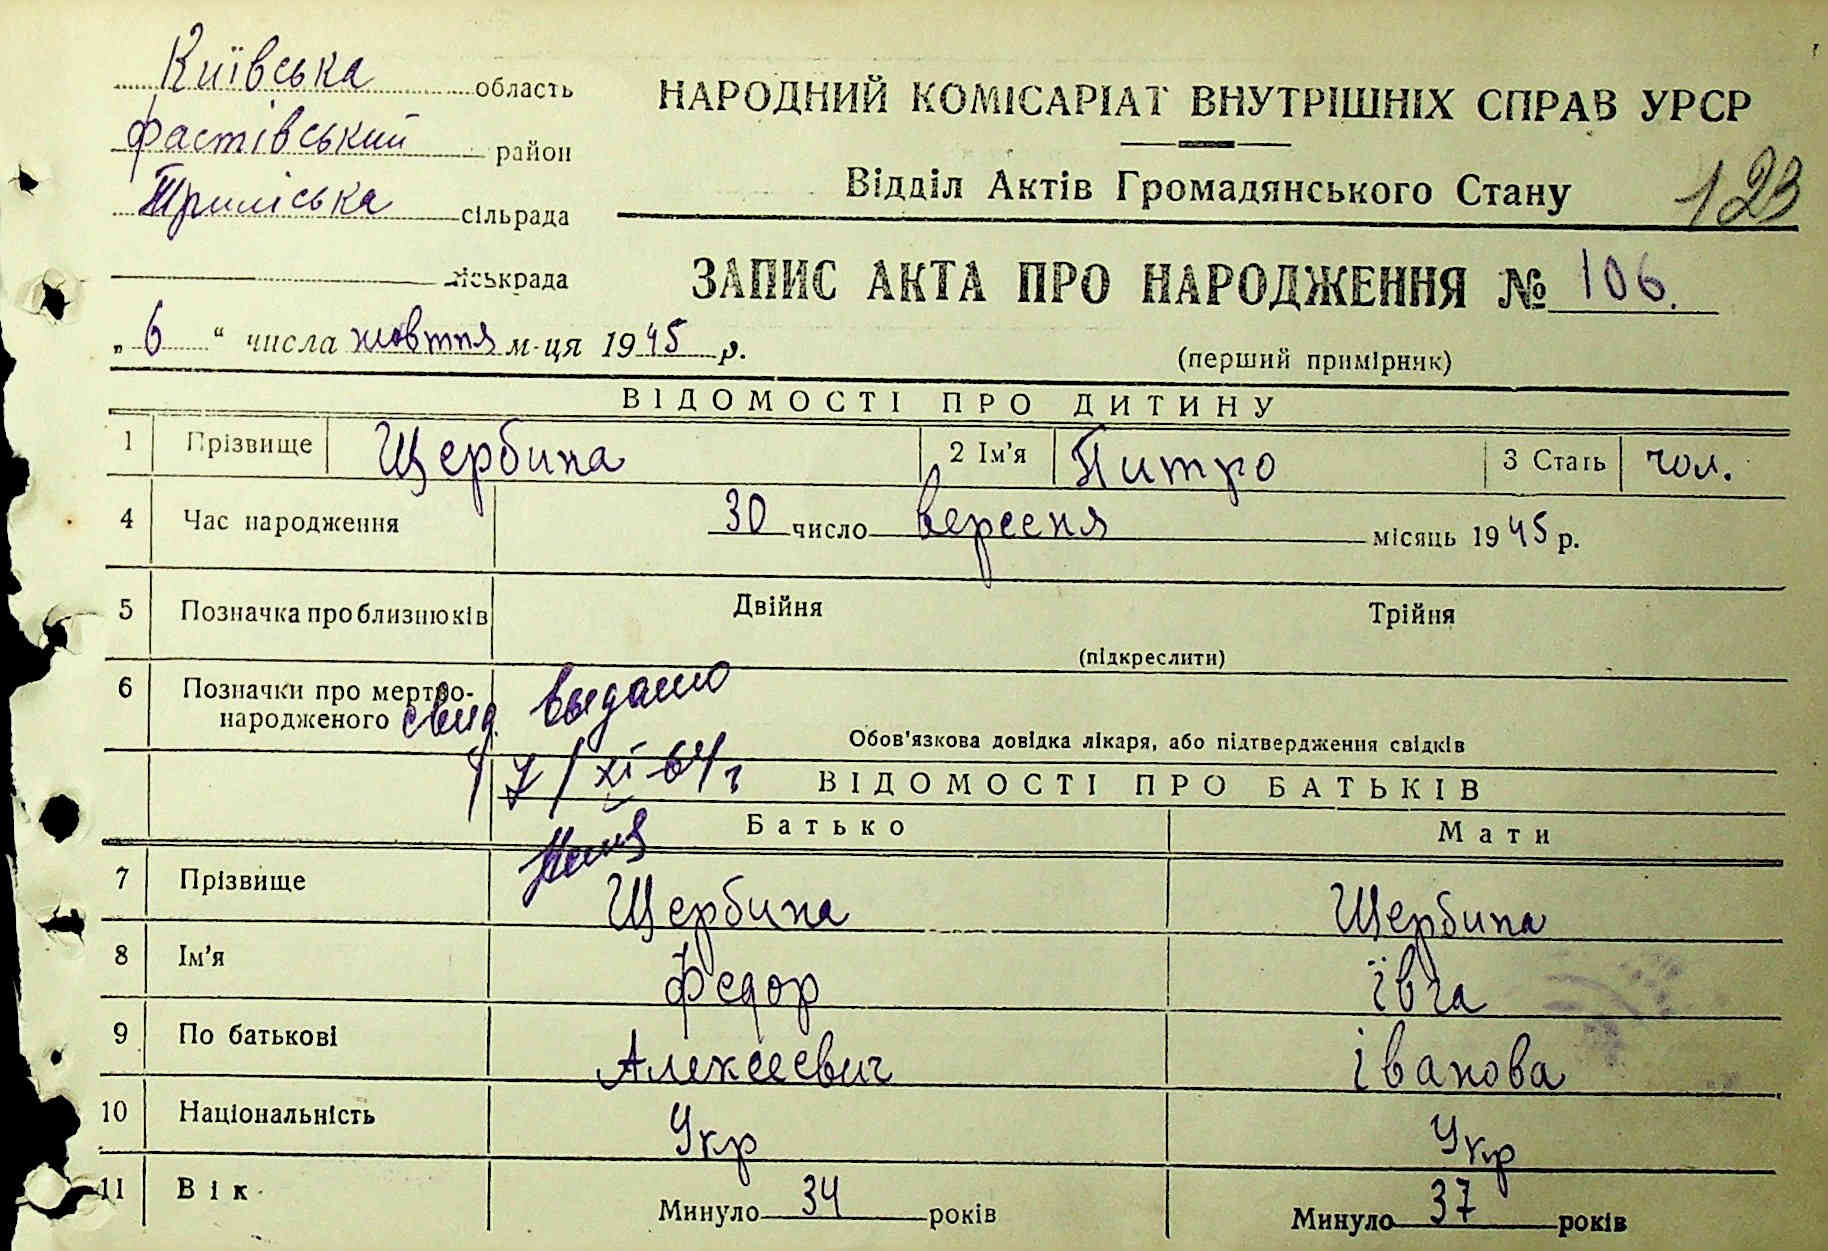 Київська область
Фастівський район
Триліська сільрада
міськрада
„ 6 “ числа жовтня м-ця 1945 р.
НАРОДНИЙ КОМІСАРІАТ ВНУТРІШНІХ СПРАВ УРСР
Відділ Актів Громадянського Стану
123
ЗАПИС АКТА ПРО НАРОДЖЕННЯ № 106.
(перший примірник)
ВІДОМОСТІ ПРО ДИТИНУ
1 Прізвище Щербина 2 Ім'я Питро 3 Стать чол.
4 Час народження 30 число вересня місяць 1945 р.
5 Позначка про близнюків Двійня Трійня
(підкреслити)
6 Позначки про мертво-
народженого свид. выдано
Обов'язкова довідка лікаря, або підтвердження свідків
7/XI-64 г
ВІДОМОСТІ ПРО БАТЬКІВ
Батько Мати
7 Прізвище Щербина Щербина
8 Ім'я Федор Ївга
9 По батькові Алексеевич Іванова
10 Національність Укр Укр
11 Вік Минуло 34 років Минуло 37 років